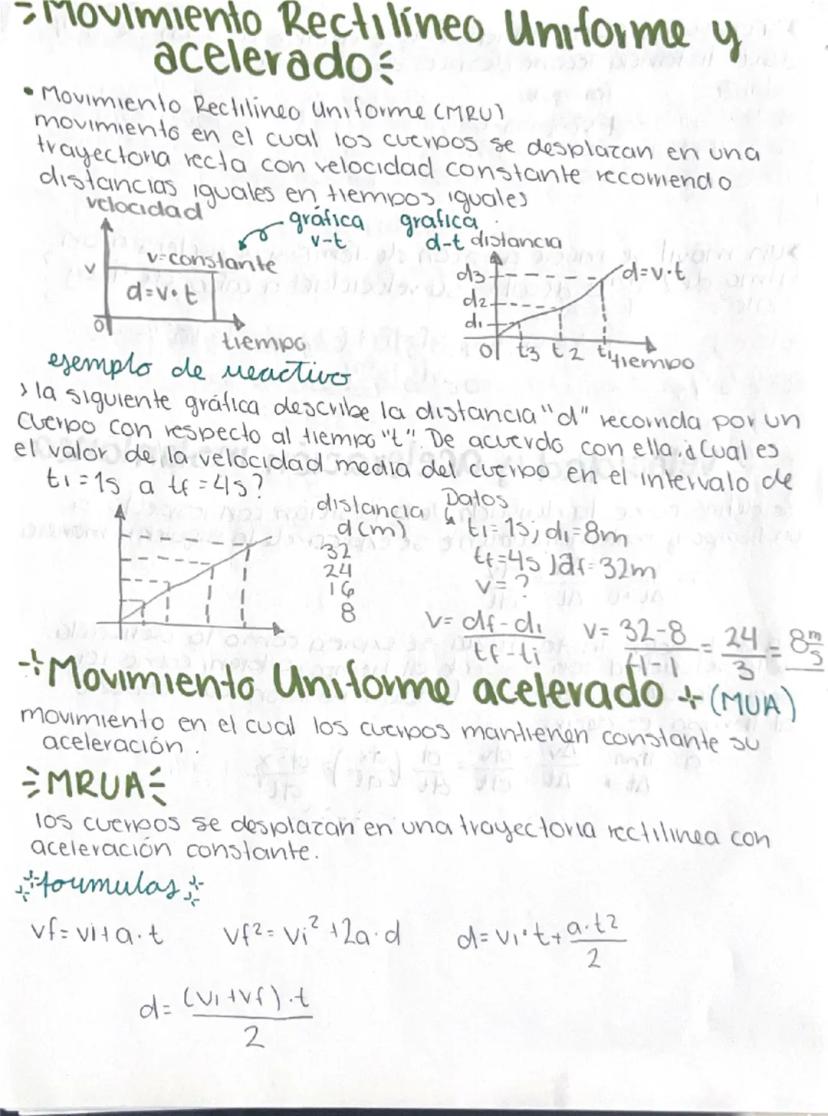 Movimiento Rectilíneo Uniforme y
acelerado
• Movimiento Rectilíneo Uniforme (MRU)
movimiento en el cual los cuerpos se desplazan en una
trayectoria recta con velocidad constante recorriendo
distancias iguales en tiempos iguales
velocidad
gráfica
v-t
v=constante
v
d=v•t
0
tiempo
grafica
d-t
distancia
d3
d2
d1
d=v·t
0 t3 t2 t1
tiempo
ejemplo de reactivo
> la siguiente gráfica describe la distancia "d" recorrida por un
cuerpo con respecto al tiempo "t". De acuerdo con ello ¿Cual es
el valor de la velocidad media del cuerpo en el intervalo de
t1=1s a tf=4s?
distancia
d(m)
32
24
16
8
Datos
t1=1s, d1=8m
tf=4s df=32m
v=?
v= df-di / tf-ti v= 32-8 / 4-1 = 24 / 3 = 8 m/s
Movimiento Uniforme acelerado (MUA)
movimiento en el cual los cuerpos mantienen constante su
aceleración.
MRUA
los cuerpos se desplazan en una trayectoria rectilinea con
aceleración constante.
formulas
vf=vi+a·t vf²=vi²+2a·d d=vi·t+ a·t2 / 2
d= (vi+vf)·t / 2